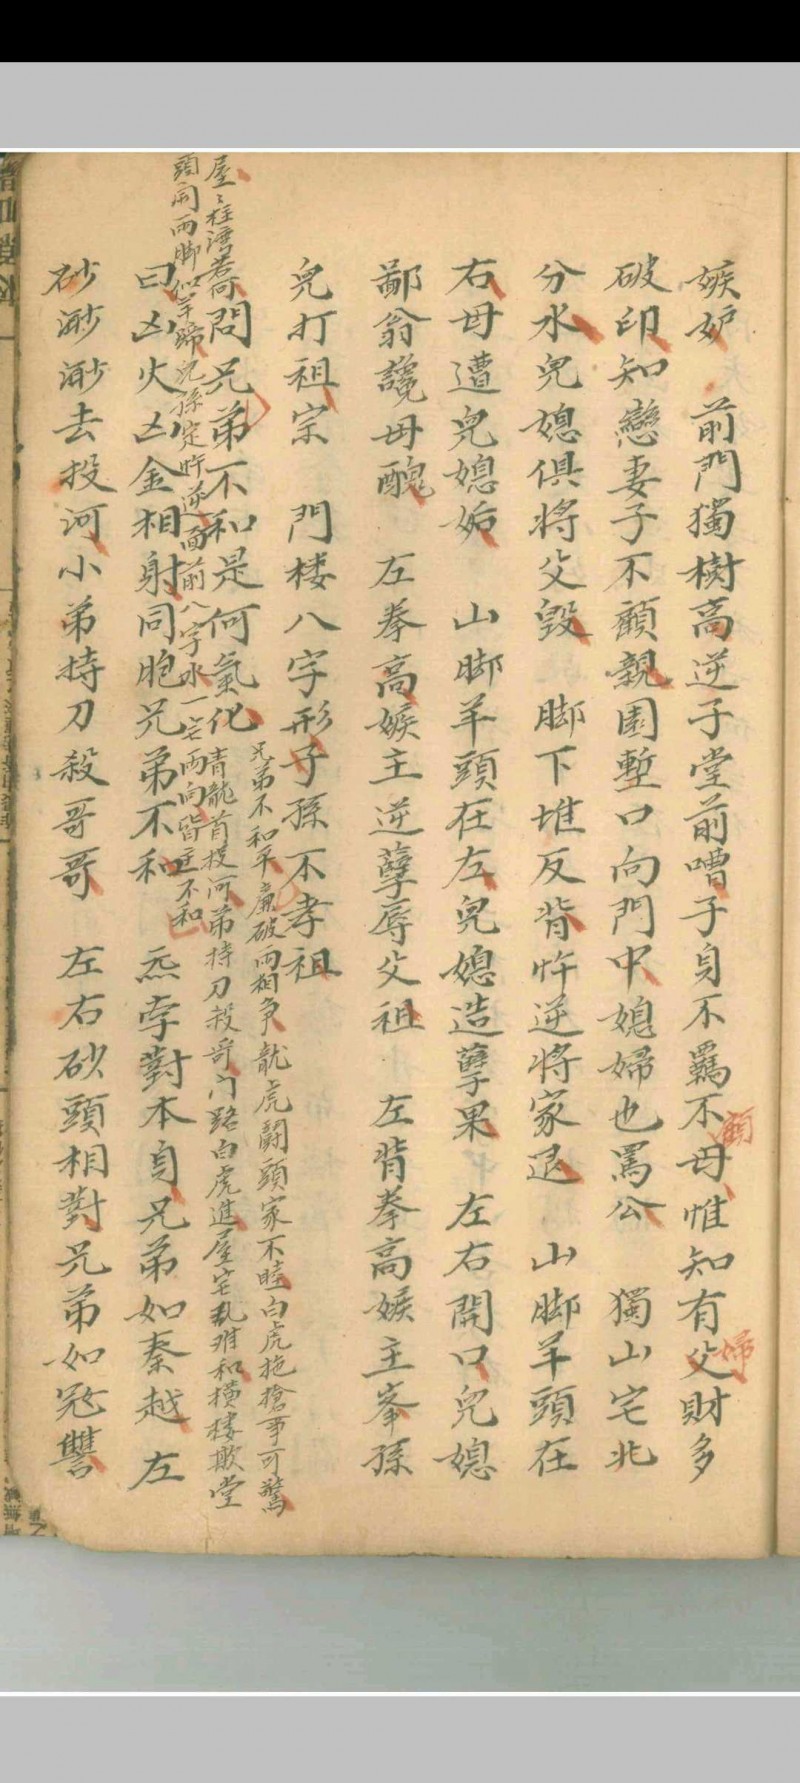 嫉妒　前門獨樹高逆子堂前嘈子身不羈不母惟知有父財多
顧
婦
破印知戀妻子不顧親園塹口向門中媳婦也罵公　獨山宅北
分水兒媳俱將父毀　脚下堆反背忤逆將家退　山脚羊頭在
右母遭兒媳姤　山脚羊頭在左兒媳造孽果　左右開口兒媳
鄙翁讒母醜　左拳高嫉主逆孽辱父祖　左背拳高嫉主峯孫
兒打祖宗　門楼八字形子孫不孝祖
兄弟不和平廉破兩相争龍虎鬪頭家不睦白虎拖槍事可驚
若問兄弟不和是何氣化
青龍首投河弟持刀殺哥门路白虎進屋宅乱难和横楼欺堂
屋〻柱湾
頭開兩脚似羊蹄兒孫定忤逆面前八字水一宅兩向皆主不和
曰凶火凶金相射同胞兄弟不和　炁孛對本身兄弟如秦越　左
砂渺渺去投河小弟持刀殺哥哥　左右砂頭相對兄弟如冦讐